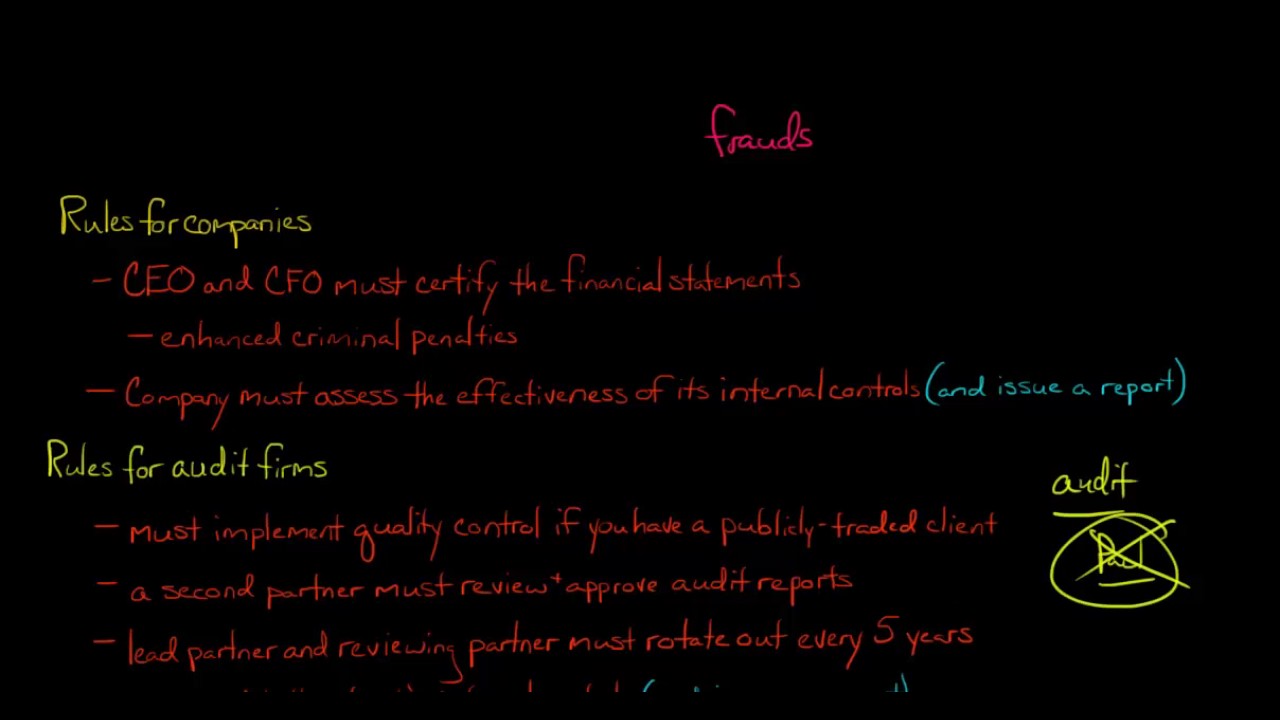 frauds
Rules for companies
- CEO and CFO must certify the financial statements
- enhanced criminal penalties
- Company must assess the effectiveness of its internal controls (and issue a report)
Rules for audit firms
audit
- must implement quality control if you have a publicly-traded client
- a second partner must review + approve audit reports
- lead partner and reviewing partner must rotate out every 5 years